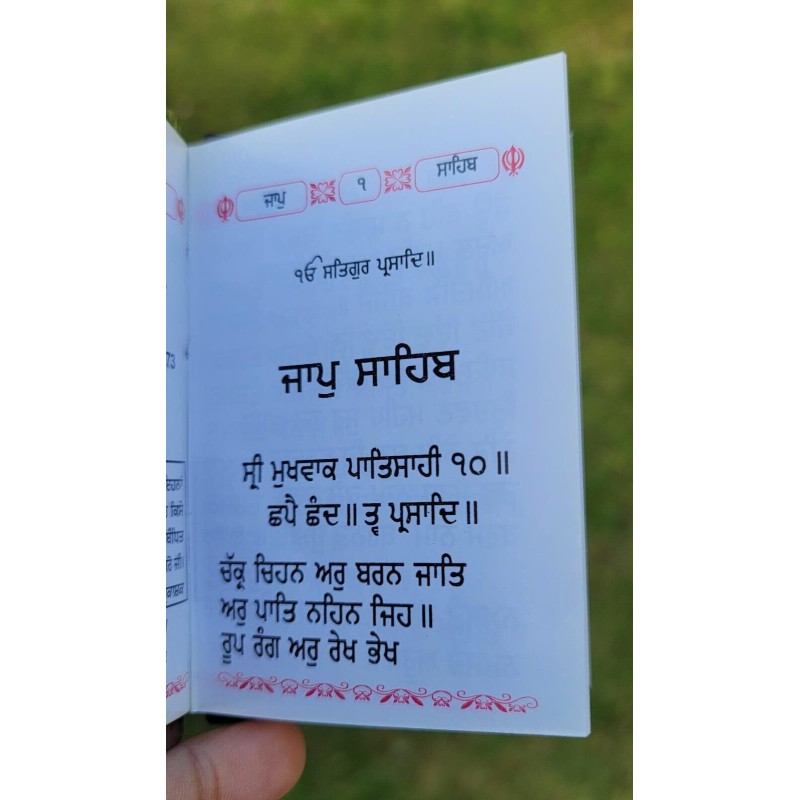 ਜਾਪੁ ੧ ਸਾਹਿਬ
ੴ ਸਤਿਗੁਰ ਪ੍ਰਸਾਦਿ॥
ਜਾਪੁ ਸਾਹਿਬ
ਸ੍ਰੀ ਮੁਖਵਾਕ ਪਾਤਿਸਾਹੀ ੧੦॥
ਛਪੈ ਛੰਦ॥ ਤ੍ਵ ਪ੍ਰਸਾਦਿ॥
ਚੱਕ੍ਰ ਚਿਹਨ ਅਰੁ ਬਰਨ ਜਾਤਿ
ਅਰੁ ਪਾਤਿ ਨਹਿਨ ਜਿਹ॥
ਰੂਪ ਰੰਗ ਅਰੁ ਰੇਖ ਭੇਖ
73
ਕਿਸੇ